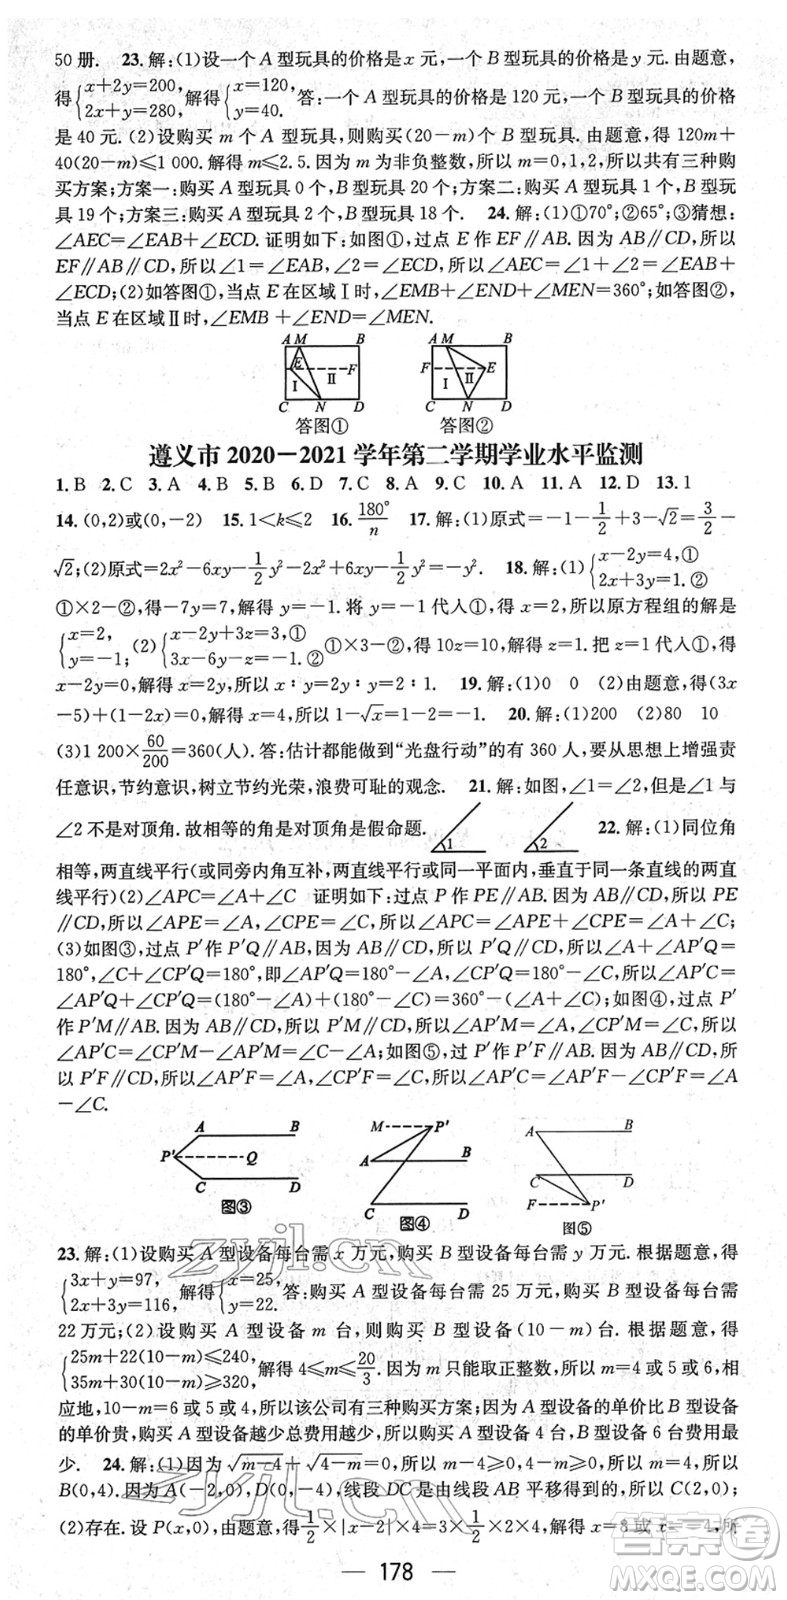 50 册. 23. 解:(1)设一个 A 型玩具的价格是 x 元,一个 B 型玩具的价格是 y 元. 由题意,
得{x+2y=200, 2x+y=280,解得{x=120, y=40. 答:一个 A 型玩具的价格是 120 元,一个 B 型玩具的价格
是 40 元. (2)设购买 m 个 A 型玩具,则购买(20-m)个 B 型玩具. 由题意,得 120m+
40(20-m)≤1 000. 解得 m≤2.5. 因为 m 为非负整数,所以 m=0,1,2,所以共有三种购
买方案;方案一:购买 A 型玩具 0 个,B 型玩具 20 个;方案二:购买 A 型玩具 1 个,B 型玩
具 19 个;方案三:购买 A 型玩具 2 个,B 型玩具 18 个. 24. 解:(1)①70°;②65°;③猜想:
∠AEC=∠EAB+∠ECD. 证明如下:如图①,过点 E 作 EF∥AB. 因为 AB∥CD,所以
EF∥AB∥CD,所以∠1=∠EAB,∠2=∠ECD,所以∠AEC=∠1+∠2=∠EAB+
∠ECD;(2)如答图①,当点 E 在区域Ⅰ时,∠EMB+∠END+∠MEN=360°;如答图②,
当点 E 在区域Ⅱ时,∠EMB+∠END=∠MEN.
A M B
E
F
Ⅰ Ⅱ
C N D
答图①
A M B
F E
Ⅰ Ⅱ
C N D
答图②
遵义市 2020-2021 学年第二学期学业水平监测
1. B 2. C 3. A 4. B 5. B 6. D 7. C 8. A 9. C 10. A 11. A 12. D 13. 1
14. (0,2)或(0,-2) 15. 1<k≤2 16. 180°/n 17. 解:(1)原式=-1-1/2+3-√2=3/2-
√2;(2)原式=2x²-6xy-1/2y²-2x²+6xy-1/2y²=-y². 18. 解:(1){x-2y=4,① 2x+3y=1.②
①×2-②,得-7y=7,解得 y=-1. 将 y=-1 代入①,得 x=2,所以原方程组的解是
{x=2, y=-1; (2){x-2y+3z=0,① 3x-6y-z=0.②①×3-②,得 10z=10. 解得 z=0. 把 z=1 代入①,得
x-2y=0,解得 x=2y,所以 x∶y=2y∶y=2∶1. 19. 解:(1)0 0 (2)由题意,得(3x
-5)+(1-2x)=0,解得 x=4,所以 1-√x=1-2=-1. 20. 解:(1)200 (2)80 10
(3)1 200×60/200=360(人). 答:估计都能做到“光盘行动”的有 360 人,要从思想上增强责
任意识,节约意识,树立节约光荣,浪费可耻的观念. 21. 解:如图,∠1=∠2,但∠1 与
∠2 不是对顶角. 故相等的角是对顶角是假命题. 1 2 22. 解:(1)同位角
相等,两直线平行(或同旁内角互补,两直线平行或在同一平面内,垂直于同一条直线的两直
线平行)(2)∠APC=∠A+∠C 证明如下:过点 P 作 PE∥AB. 因为 AB∥CD,所以 PE
∥CD,所以∠APE=∠A,∠CPE=∠C,所以∠APC=∠APE+∠CPE=∠A+∠C;
(3)如图③,过点 P′作 P′Q∥AB,因为 AB∥CD,所以 P′Q∥CD,所以∠A+∠AP′Q=
180°,∠C+∠CP′Q=180°,即∠AP′Q=180°-∠A,∠CP′Q=180°-∠C,所以∠AP′C=
∠AP′Q+∠CP′Q=(180°-∠A)+(180°-∠C)=360°-(∠A+∠C);如图④,过点 P′
作 P′M∥AB. 因为 AB∥CD,所以 P′M∥CD,所以∠AP′M=∠A,∠CP′M=∠C,所以
∠AP′C=∠CP′M-∠AP′M=∠C-∠A;如图⑤,过 P′作 P′F∥AB. 因为 AB∥CD,所
以 P′F∥CD,所以∠AP′F=∠A,∠CP′F=∠C,所以∠AP′C=∠AP′F-∠CP′F=∠A
-∠C.
A B
P′ Q
C D
图③
M P′
A B
C D
图④
A B
C D
F P′
图⑤
23. 解:(1)设购买 A 型设备每台需 x 万元,购买 B 型设备每台需 y 万元. 根据题意,得
{3x+y=97, 2x+3y=116, 解得{x=25, y=22. 答:购买 A 型设备每台需 25 万元,购买 B 型设备每台需
22 万元;(2)设购买 A 型设备 m 台,则购买 B 型设备(10-m)台. 根据题意,得
{25m+22(10-m)≤240, 35m+30(10-m)≥320,解得 4≤m≤20/3. 因为 m 只能取正整数,所以 m=4 或 5 或 6,相
应地,10-m=6 或 5 或 4,所以该公司有三种购买方案;因为 A 型设备的单价比 B 型设备
的单价贵,购买 A 型设备越少总费用越少,所以购买 A 型设备 4 台,B 型设备 6 台费用最
少. 24. 解:(1)因为√m-4+√4-m=0,所以 m-4≥0,4-m≥0,所以 m=4,所以
B(0,4). 因为 A(-2,0),D(4,-2),线段 DC 是由线段 AB 平移得到的,所以 C(2,0);
(2)存在. 设 P(x,0),由题意,得1/2×|x-2|×4=3×1/2×2×4,解得 x=8 或 x=-4,所
178
zyjl.cn
zyjl.cn
答案圈
MXQE.COM